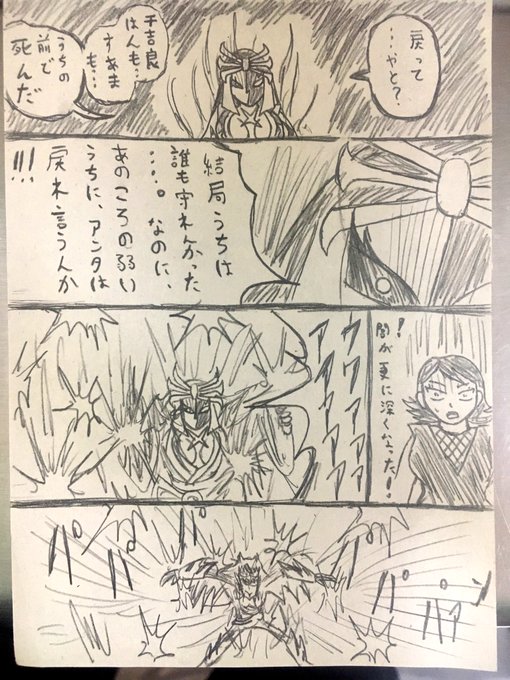 戻って
…やと?
千吉良
はんも…
すあま
も…
うちの
前で
死んだ
結局うちは
誰も守れんかった
…。なのに、
あのころの弱い
うちに、アンタは
戻れ言うんか
!!!
!
闇が更に深くなった!
ウワアアアアア
アアアアアア
パァ
パ
パ
パーン
パァ